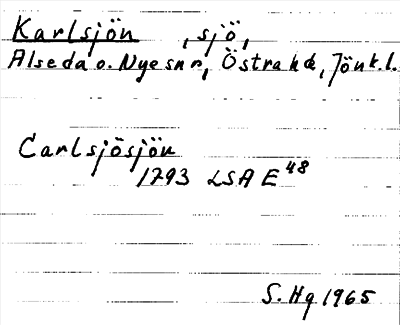 Karlsjön , sjö,
Alseda o. Nye snr, Östra hd, Jönk.l.
Carlsjösjön
1793 LSA E48
S. Hg 1965